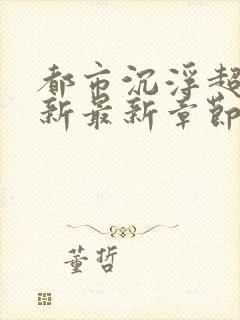 都市沉浮超
新最新章节
董哲